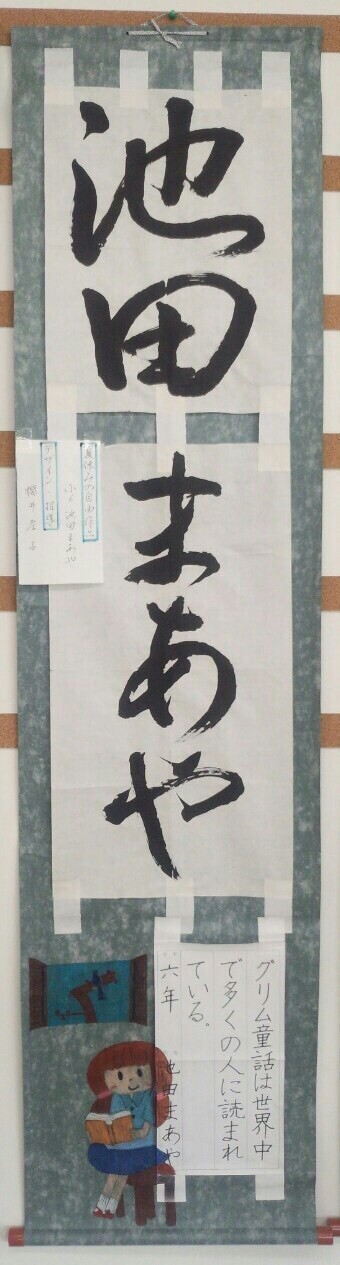 池田
まあや
夏休みの自由作品
小6 池田まあや
デザイン 指導
グリム童話は世界中
で多くの人に読まれ
ている。
六年 池田まあや